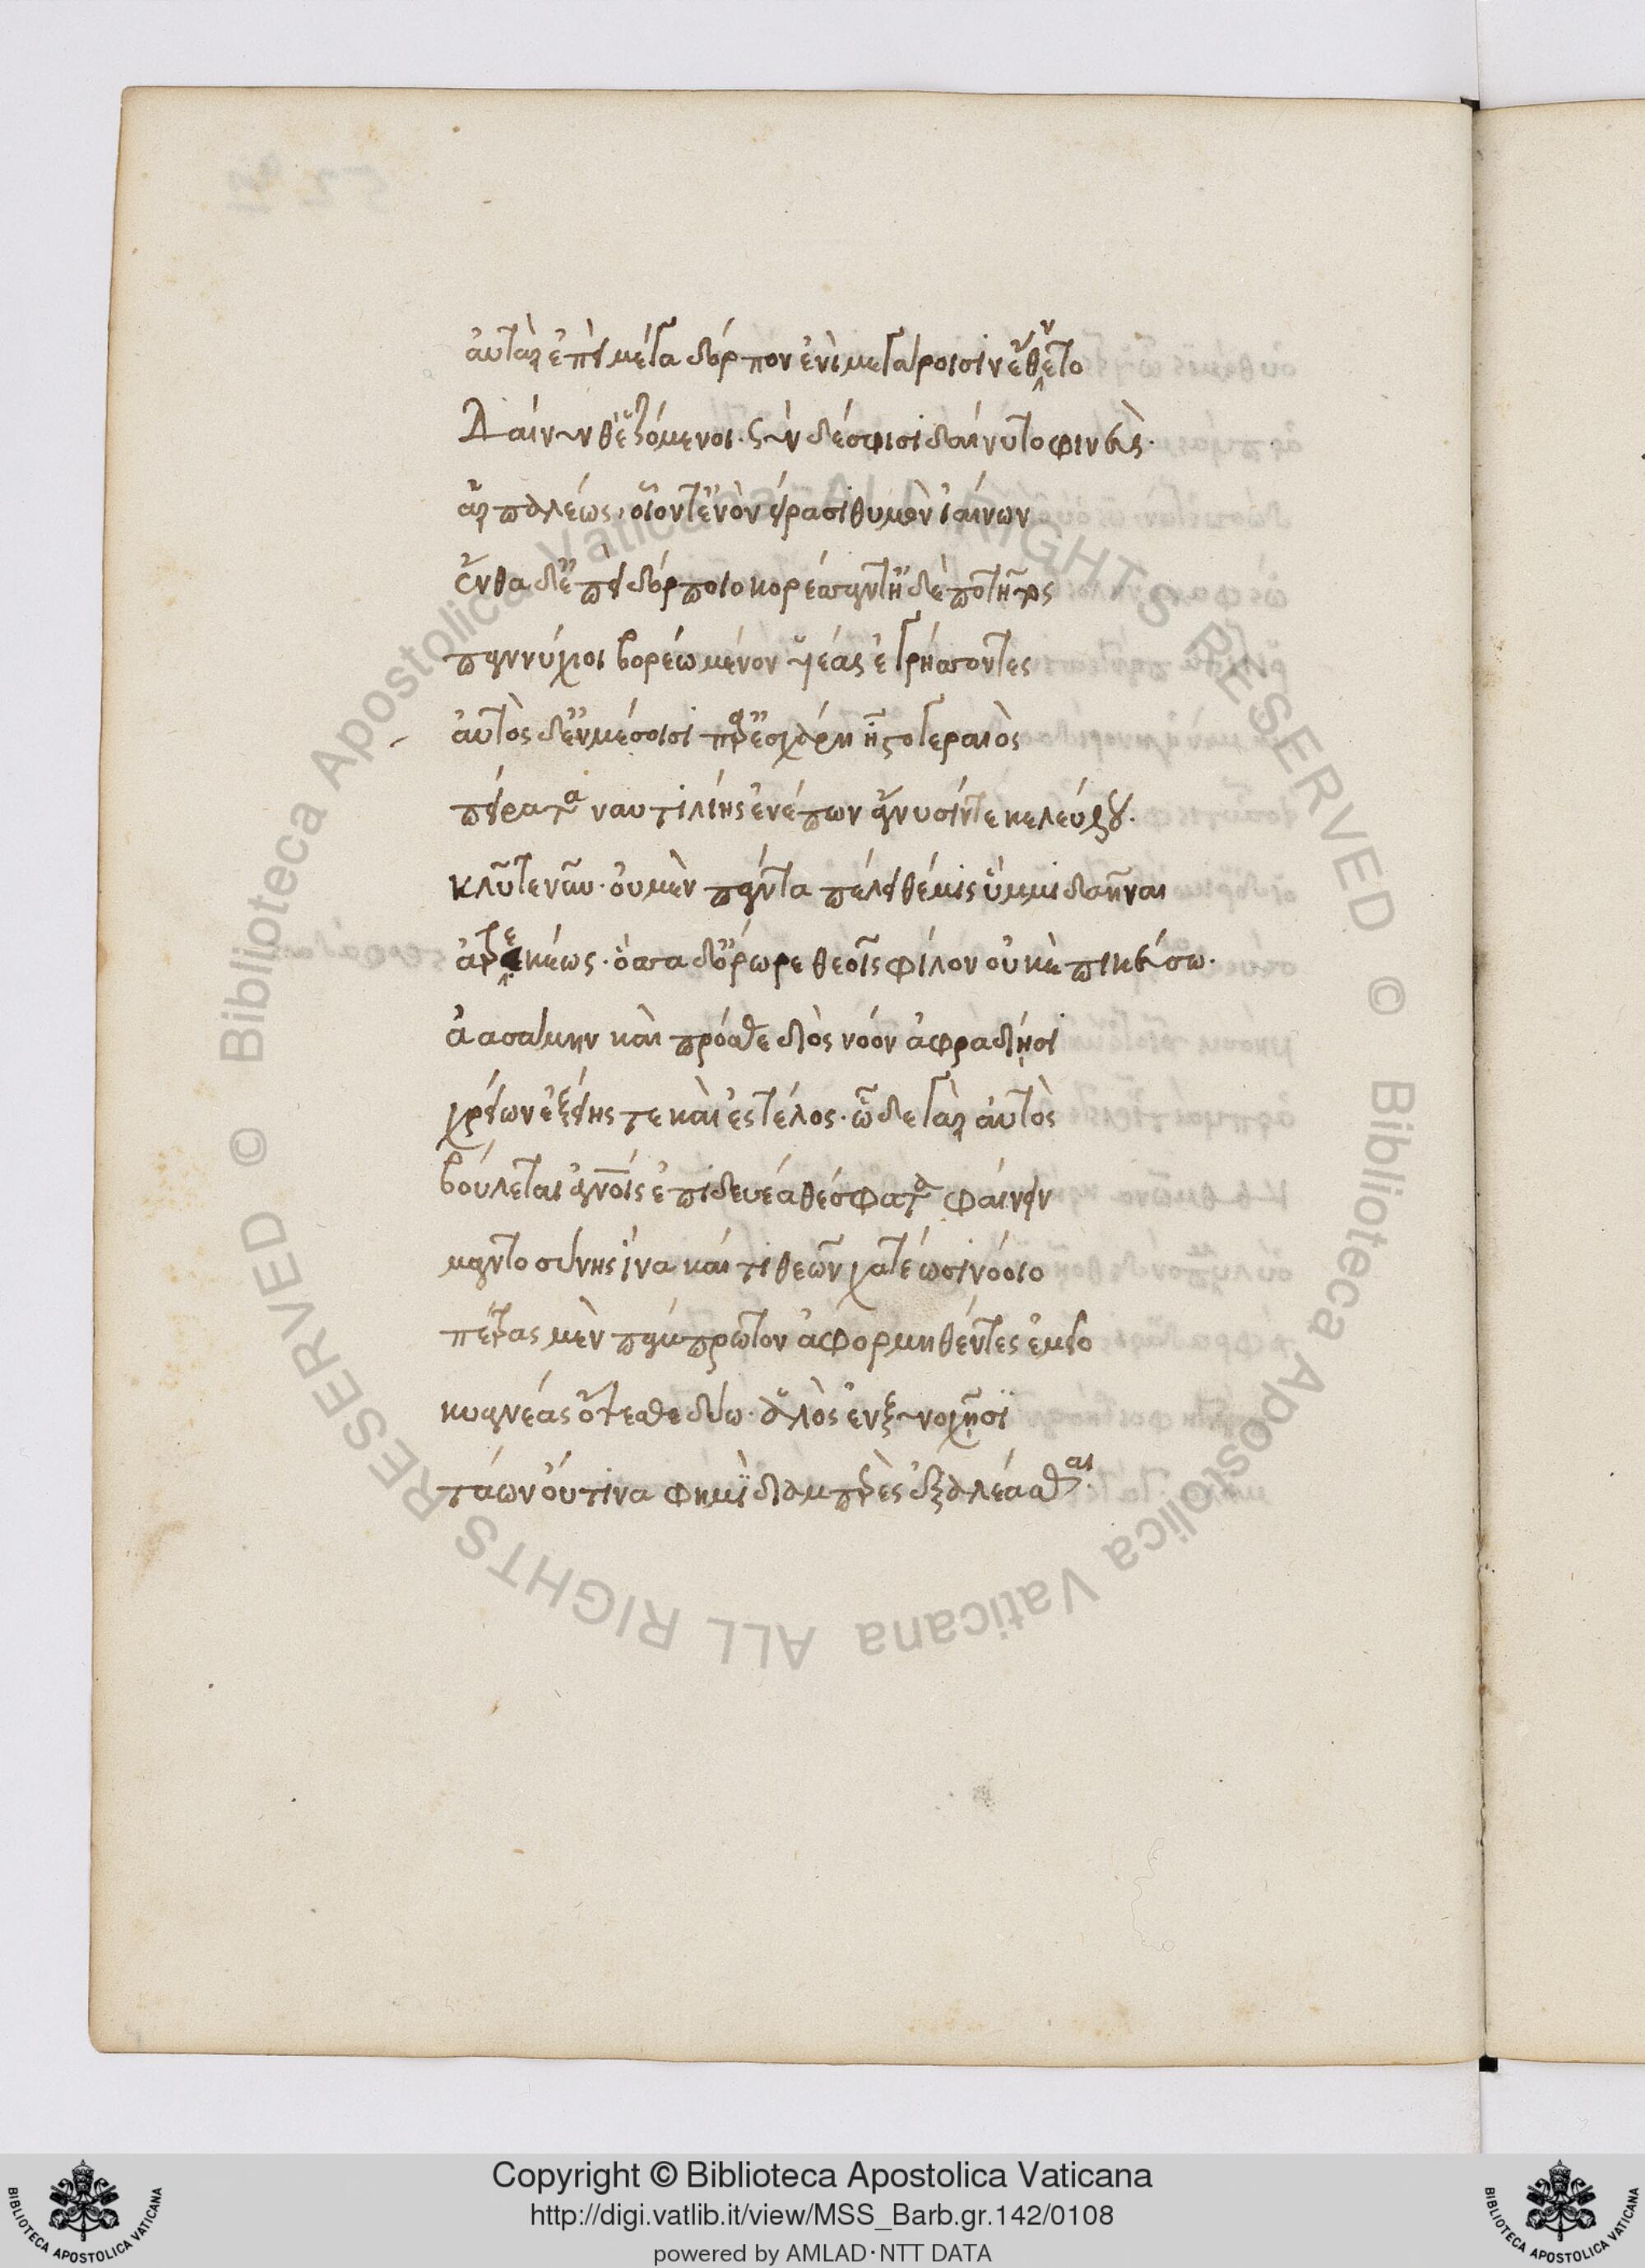 αὐτὰρ ἐπεὶ μέγα δόρπον ἐνὶ μεγάροισιν ἔθεντο
Δαίνυνθ' ἑζόμενοι· σὺν δέ σφισι δαίνυτο φινεὺς·
ἁρπαλέως, οἷόν τ' ἐν ὀνείρασι θυμὸν ἰαίνων
ἔνθα δ' ἐπεὶ δόρποιο κορέσαντ' ἠδὲ ποτῆτος
παννύχιοι βορέω μένον υἱέας ἐγρήσσοντες
αὐτὸς δ' ἐν μέσσοισι παρ' ἐσχάρῃ ἧστο γεραιὸς
πείρατα ναυτιλίης ἐνέπων ἄνυσίν τε κελεύθου·
κλῦτέ νυν· οὐ μὲν πάντα πέλει θέμις ὔμμι δαῆναι
ἀτρεκέως· ὅσσα δ' ὄρωρε θεοῖς φίλον οὐκ ἐπικεύσω·
ἀασάμην καὶ πρόσθε διὸς νόον ἀφραδίῃσι
χρείων ἑξείης τε καὶ ἐς τέλος· ὧδε γὰρ αὐτὸς
βούλεται ἀνθρώποις ἐπιδευέα θέσφατα φαίνειν
μαντοσύνης ἵνα καί τι θεῶν χατέωσι νόοιο
πέτρας μὲν πάμπρωτον ἀφορμηθέντες ἐμεῖο
κυανέας ὄψεσθε δύω· ἁλὸς ἐν ξυνοχῇσι
τάων οὔτινα φημὶ διαμπερὲς ἐξαλέασθαι·
Copyright © Biblioteca Apostolica Vaticana
http://digi.vatlib.it/view/MSS_Barb.gr.142/0108
powered by AMLAD·NTT DATA